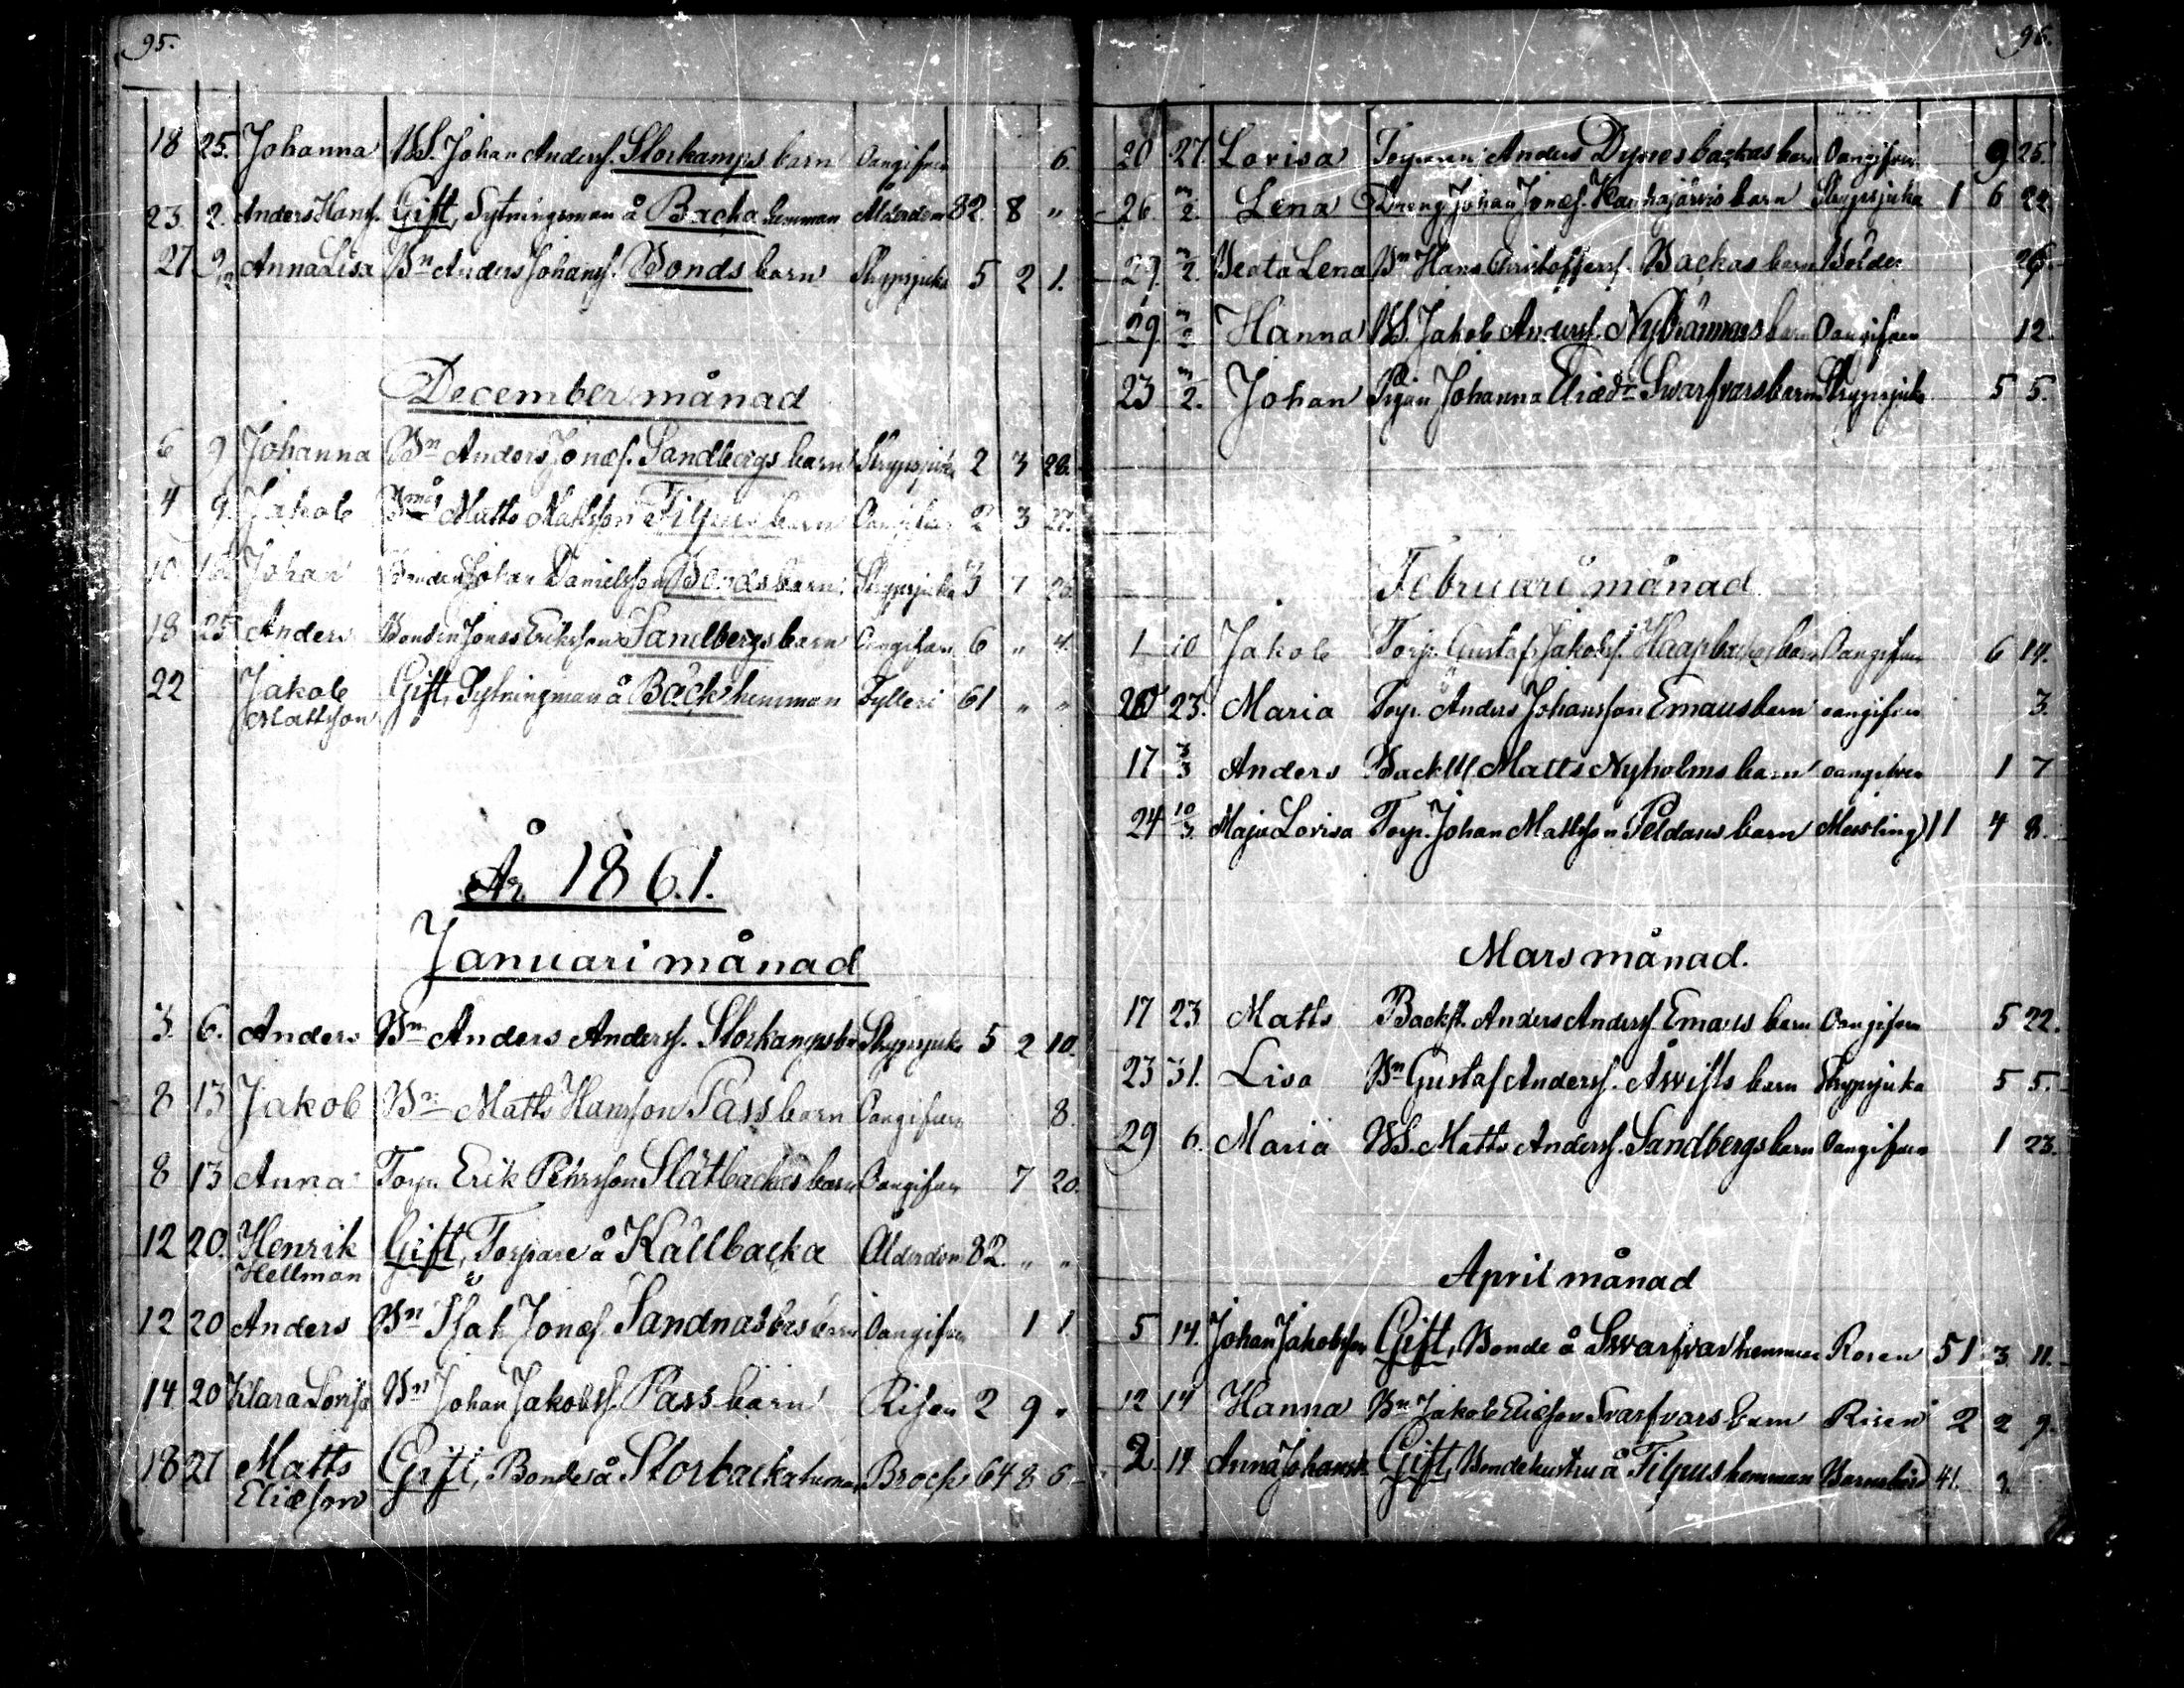 95.
18 25. Johanna BS. Johan Anderss. Storkamps barn Oangifven 6.
23. 2. Anders Hanss. Gift, Sytningsman å Backa hemman Ålderdom 82. 8 "
27 9/12 Anna Lisa Bn Anders Johanss. Bonds barn Strypsjuka 5 2 1.
December månad
6 9 Johanna Bn Anders Jonæs. Sandbergs barn Strypsjuka 2 3 28.
4 9. Jakob Matts Mattsson Filpus barn Oangifven 2 3 27.
10 Johan Bonden Johan Danielsson Bonds barn Strypsjuka 3 7
18 25 Anders Bonden Jonas Eriksson Sandbergs barn Oangifven 6 " 4.
22 Jakob Gift, Sytningman å Back hemman Fylleri 61 " "
Mattsson
År 1861.
Januari månad
3. 6. Anders Bn Anders Anderss. Storkamps bn Strypsjuka 5 2 10.
8 13 Jakob Bn Matts Hansson Pass barn Oangifven 8.
8 13 Anna Torp. Erik Pehrsson Slätbackas barn Oangifven 7 20.
12 20. Henrik Gift, Torpare å Källbacka Ålderdom 82. " "
Hellman
12 20 Anders Bn Isak Jonæs. Sandnäsbas barn Oangifven 1 1
14 20 Klara Lovisa Bn Johan Jakobss. Pass barn Risen 2 9 "
18 27 Matts Gift, Bonde å Storbacka heman Brock 64 8 5
Eliæson
96.
20 27. Lovisa Torparen Anders Dynesbackas barn Oangifven 9 25.
26. 3/2. Lena Dreng. Johan Jonæs. Kauhajärvis barn Strypsjuka 1 6 22.
29. 3/2. Beata Lena Bn Hans Christofferss. Backas barn Bölder
29. 3/2 Hanna BS. Jakob Anderss. Nybrännars barn Oangifven 12.
23 3/2. Johan Pigan Johanna Eliædr Swarfvars barn Strypsjuka 5 5.
Februari månad
1 10 Jakob Torp. Gustaf Jakobss. Haapbackas barn Oangifven 6 14.
20 23. Maria Torp. Anders Johansson Emaus barn oangifven 3.
17 3/3 Anders Backst Matts Nyholms barn oangifven 1 7
24 10/3. Maja Lovisa Torp. Johan Mattsson Peldans barn Messling 11 4 8.
Mars månad.
17 23 Matts Backst. Anders Anderss. Emaus barn Oangifven 5 22.
23 31. Lisa Bn Gustaf Anderss. Åwists barn Strypsjuka 5 5.
29 6. Maria BS. Matts Anderss. Sandbergs barn Oangifven 1 23.
April månad
5 14. Johan Jakobsson Gift, Bonde å Swarfvar hemman Rosen 51 3 11.
12 14 Hanna Bn Jakob Eliæson Svarfvars barn Risen 2 2 9.
2 14 Anna Johansdr Gift, Bondehustru å Filpus hemman Barnsbörd 41. 3.